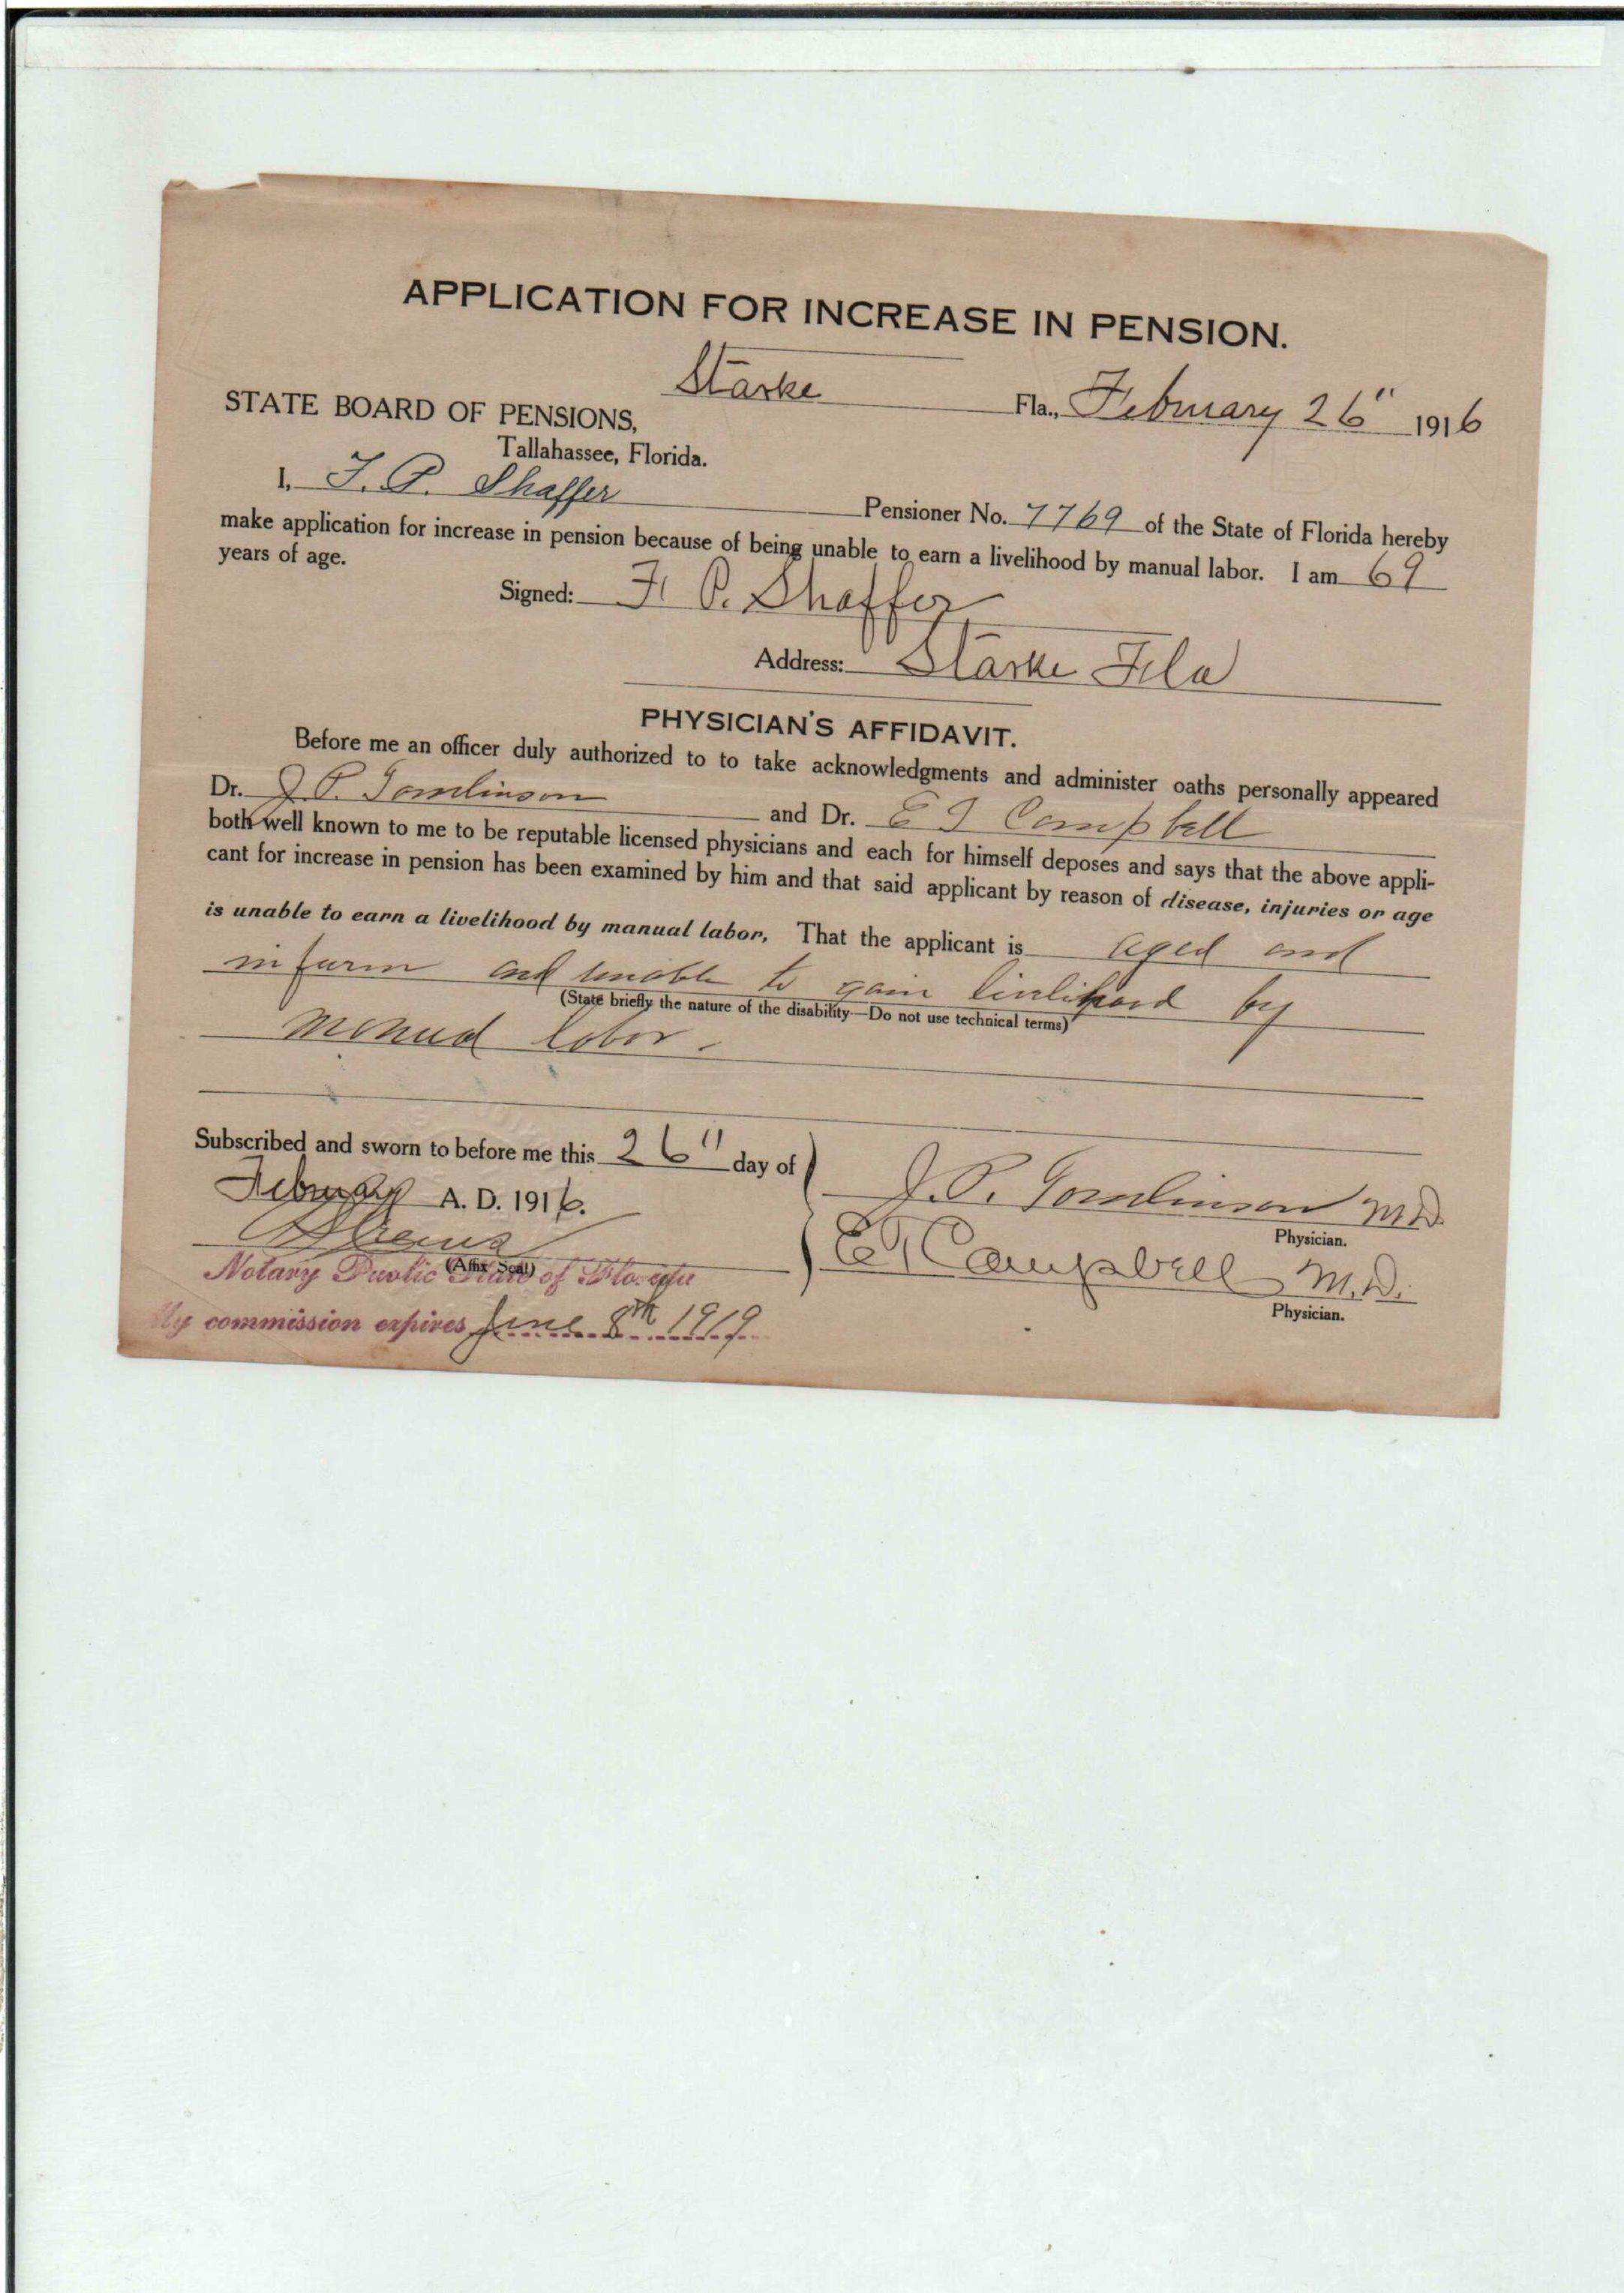 APPLICATION FOR INCREASE IN PENSION.
Starke Fla., February 26" 1916
STATE BOARD OF PENSIONS,
Tallahassee, Florida.
I, F. P. Shaffer Pensioner No. 7769 of the State of Florida hereby
make application for increase in pension because of being unable to earn a livelihood by manual labor. I am 69
years of age.
Signed: F. P. Shaffer
Address: Starke Fla
PHYSICIAN'S AFFIDAVIT.
Before me an officer duly authorized to to take acknowledgments and administer oaths personally appeared
Dr. J. P. Tomlinson and Dr. E T Campbell
both well known to me to be reputable licensed physicians and each for himself deposes and says that the above appli-
cant for increase in pension has been examined by him and that said applicant by reason of disease, injuries or age
is unable to earn a livelihood by manual labor, That the applicant is aged and
infurm and unable to gain livelihood by
(State briefly the nature of the disability—Do not use technical terms)
manual labor.
Subscribed and sworn to before me this 26" day of
February A. D. 1916.
J. P. Tomlinson M.D.
Physician.
(Affix Seal)
Notary Public State of Florida
E T Campbell M.D.
Physician.
My commission expires June 8th 1919